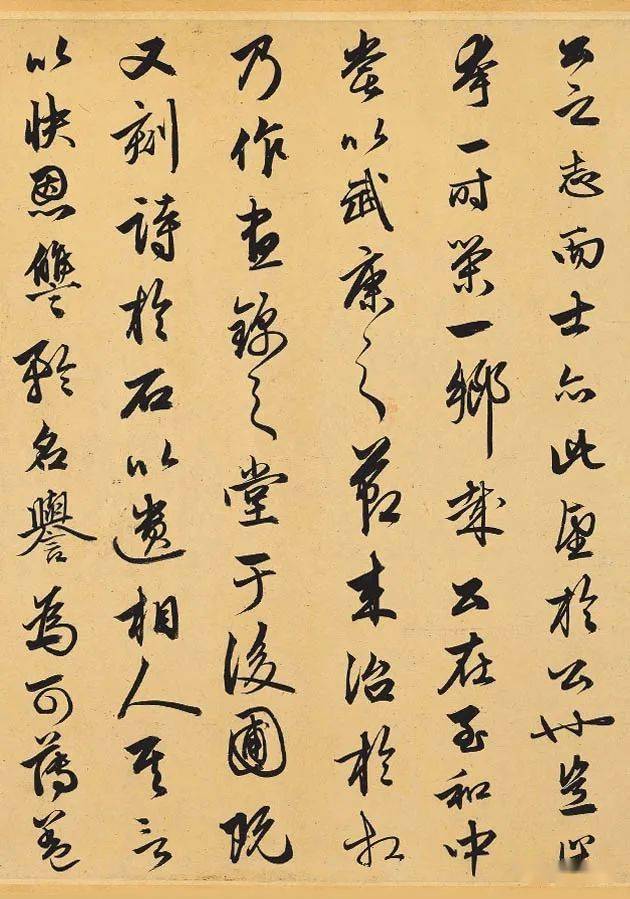 公之志而士亦此望於公也豈止
夸一時榮一鄉哉公在至和中
嘗以武康之節来治於相
乃作晝錦之堂于後圃既
又刻詩於石以遺相人其言
以快恩讎矜名譽為可薄蓋